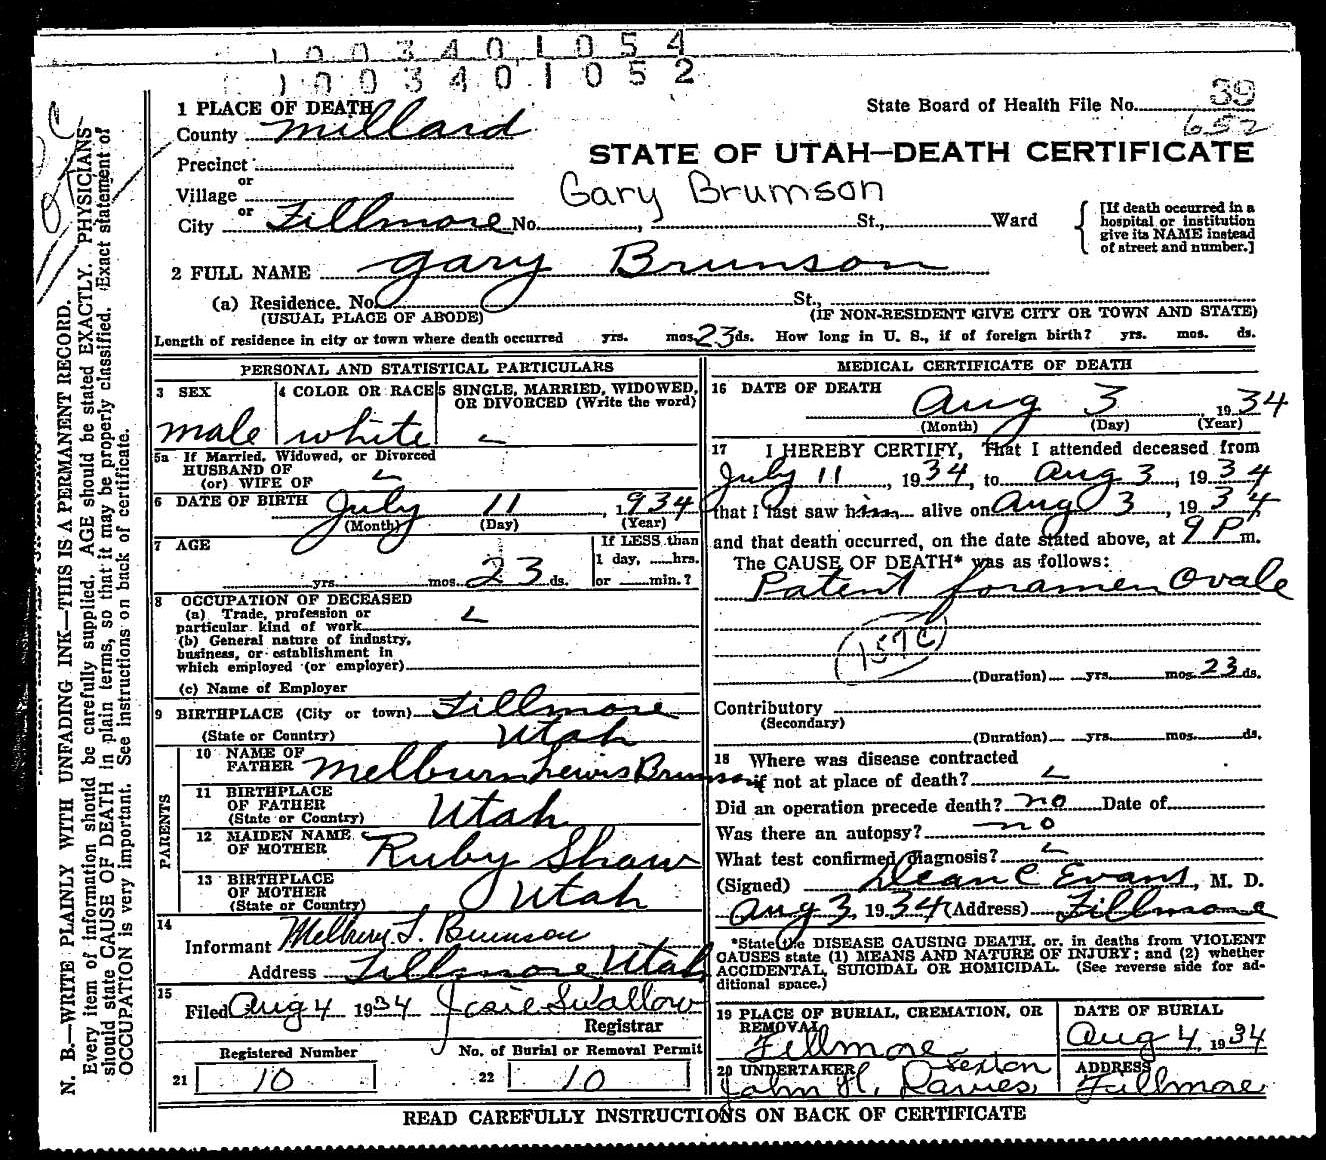 1003401054
1003401052
39
State Board of Health File No.
652
1 PLACE OF DEATH
County Millard
Precinct
or
Village
or
City Fillmore No. , St., Ward
STATE OF UTAH—DEATH CERTIFICATE
Gary Brumson
[If death occurred in a
hospital or institution
give its NAME instead
of street and number.]
2 FULL NAME Gary Brunson
(a) Residence. No. St.,
(USUAL PLACE OF ABODE) (IF NON-RESIDENT GIVE CITY OR TOWN AND STATE)
Length of residence in city or town where death occurred yrs. mos. 23 ds. How long in U. S., if of foreign birth? yrs. mos. ds.
PERSONAL AND STATISTICAL PARTICULARS
3 SEX
male
4 COLOR OR RACE
white
5 SINGLE, MARRIED, WIDOWED,
OR DIVORCED (Write the word)
5a If Married, Widowed, or Divorced
HUSBAND OF
(or) WIFE OF
6 DATE OF BIRTH July 11, 1934
(Month) (Day) (Year)
7 AGE
yrs. mos. 23 ds.
If LESS than
1 day, hrs.
or min.?
8 OCCUPATION OF DECEASED
(a) Trade, profession or
particular kind of work
(b) General nature of industry,
business, or establishment in
which employed (or employer)
(c) Name of Employer
9 BIRTHPLACE (City or town) Fillmore
(State or Country) Utah
PARENTS
10 NAME OF
FATHER Melburn Lewis Brunson
11 BIRTHPLACE
OF FATHER
(State or Country) Utah
12 MAIDEN NAME
OF MOTHER Ruby Shaw
13 BIRTHPLACE
OF MOTHER
(State or Country) Utah
14
Informant Melburn L. Brunson
Address Fillmore Utah
15
Filed Aug 4 1934 Josie Swallow
Registrar
Registered Number
21 10
No. of Burial or Removal Permit
22 10
MEDICAL CERTIFICATE OF DEATH
16 DATE OF DEATH
Aug 3, 1934
(Month) (Day) (Year)
17 I HEREBY CERTIFY, That I attended deceased from
July 11, 1934, to Aug 3, 1934
that I last saw him alive on Aug 3, 1934,
and that death occurred, on the date stated above, at 9 P m.
The CAUSE OF DEATH* was as follows:
Patent foramen Ovale
157C
(Duration) yrs. mos. 23 ds.
Contributory
(Secondary)
(Duration) yrs. mos. ds.
18 Where was disease contracted
if not at place of death?
Did an operation precede death? no Date of
Was there an autopsy? no
What test confirmed diagnosis?
(Signed) Dean C Evans, M. D.
Aug 3, 1934 (Address) Fillmore
*State the DISEASE CAUSING DEATH, or, in deaths from VIOLENT
CAUSES state (1) MEANS AND NATURE OF INJURY; and (2) whether
ACCIDENTAL, SUICIDAL OR HOMICIDAL. (See reverse side for ad-
ditional space.)
19 PLACE OF BURIAL, CREMATION, OR
REMOVAL
Fillmore
DATE OF BURIAL
Aug 4, 1934
20 UNDERTAKER Sexton
John H. Davies
ADDRESS
Fillmore
READ CAREFULLY INSTRUCTIONS ON BACK OF CERTIFICATE
N. B.—WRITE PLAINLY WITH UNFADING INK—THIS IS A PERMANENT RECORD.
Every item of information should be carefully supplied. AGE should be stated EXACTLY. PHYSICIANS
should state CAUSE OF DEATH in plain terms, so that it may be properly classified. Exact statement of
OCCUPATION is very important. See instructions on back of certificate.